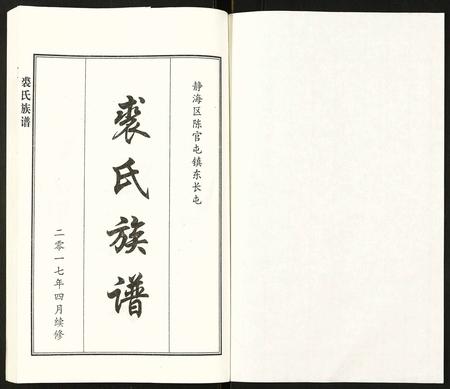 静海区陈官屯镇东长屯
裘氏族谱
二零一七年四月续修
裘氏族谱